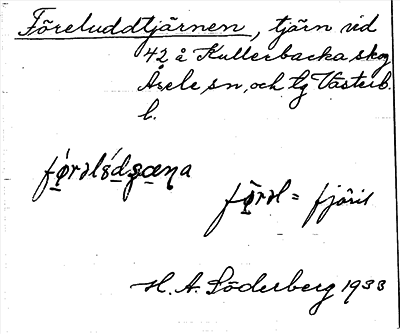 Föreluddtjärnen, tjärn vid
42 å Kullerbacka skog
Åsele sn, och lg Västerb.
l.
fø̀rəl = fjäril
H. A. Söderberg 1933